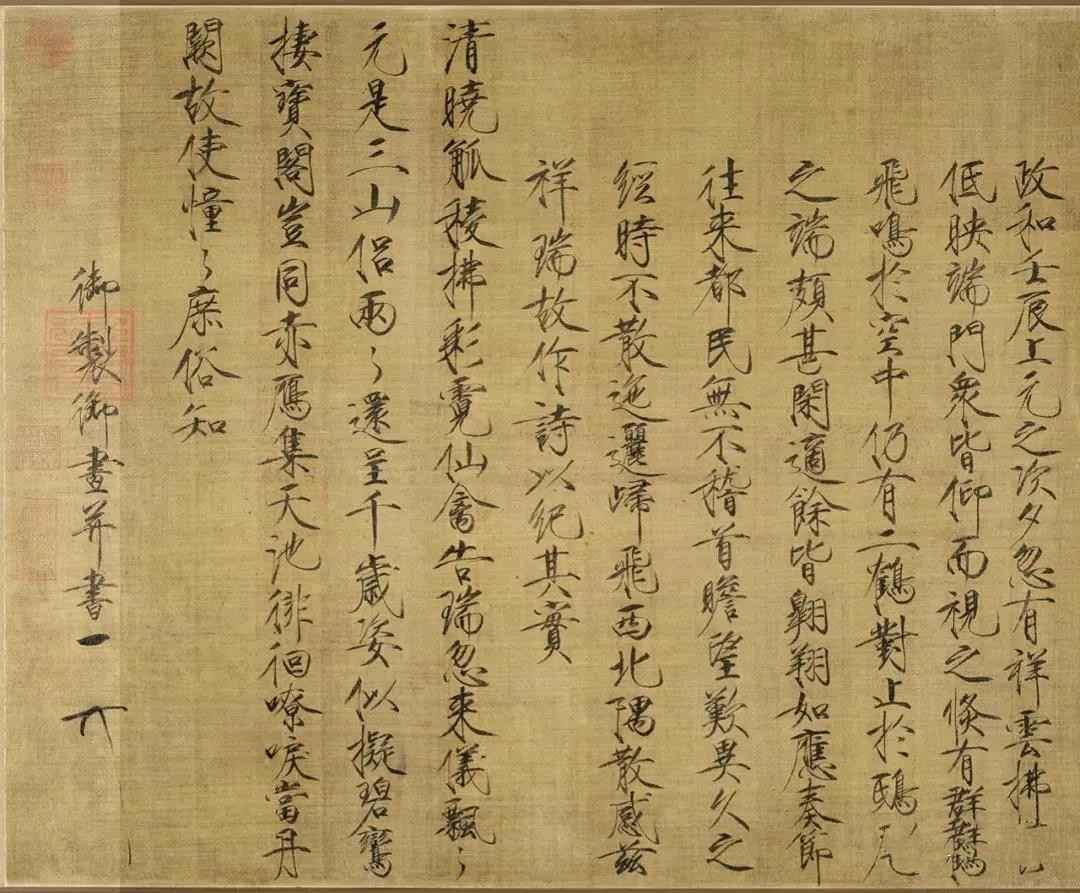 政和壬辰上元之次夕忽有祥雲拂
低映端門衆皆仰而視之倐有群鶴
飛鳴於空中仍有二鶴對止於鴟尾
之端頗甚閑適餘皆翱翔如應奏節
往来都民無不稽首瞻望歎異久之
經時不散迤邐歸飛西北隅散感兹
祥瑞故作詩以紀其實
清曉觚稜拂彩霓仙禽告瑞忽来儀飄〻
元是三山侣兩〻還呈千歲姿似擬碧鸞
棲寶閣豈同赤鴈集天池徘徊嘹唳當丹
闕故使憧〻庶俗知
御製御畫并書